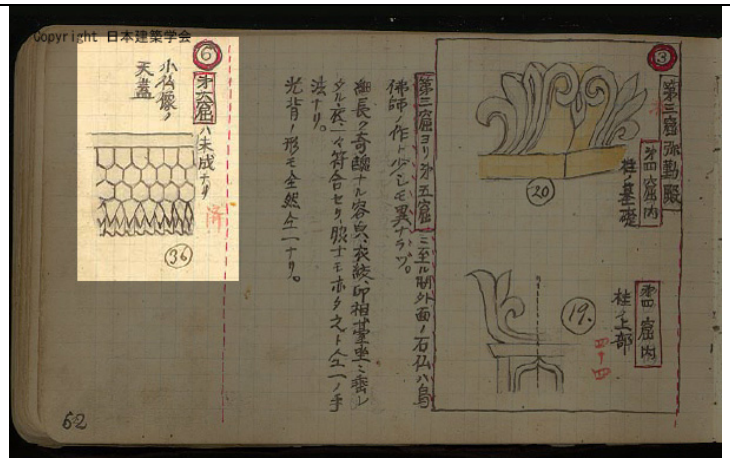 Copyright 日本建築学会
③
第三窟 弥勒殿
第四窟内
柱ノ基礎
20
第四窟内
柱ノ上部
19.
四ノ四
第二窟ヨリ第五窟ニ至ル間外面ノ石仏ハ鳥
佛師ノ作ト少シモ異ナラヅ。
細長ク奇醜ナル容貌、衣紋、印相其臺坐ニ垂レ
タル衣、一々符合セリ、脇士モホタ之ト仝一ノ手
法ナリ。
光背ノ形モ全然仝一ナリ。
⑥
第六窟ハ未成ナリ
小仏像ノ
天蓋
済
36
62